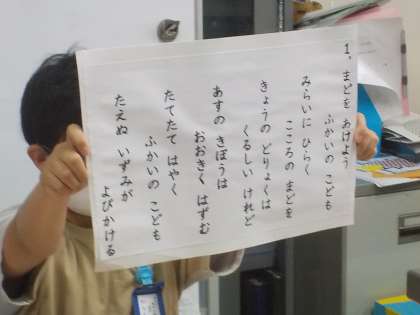 1. まどを あけよう
ふかいの こども
みらいに ひらく
こころの まどを
きょうの どりょくは
くるしい けれど
あすの きぼうは
おおきく はずむ
たてたて はやく
ふかいの こども
たえぬ いずみが
よびかける